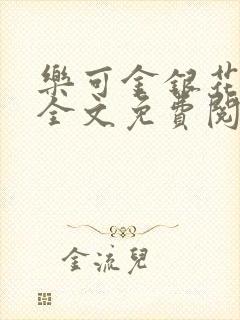 樂可金銀花
全文免費閱
金流兒